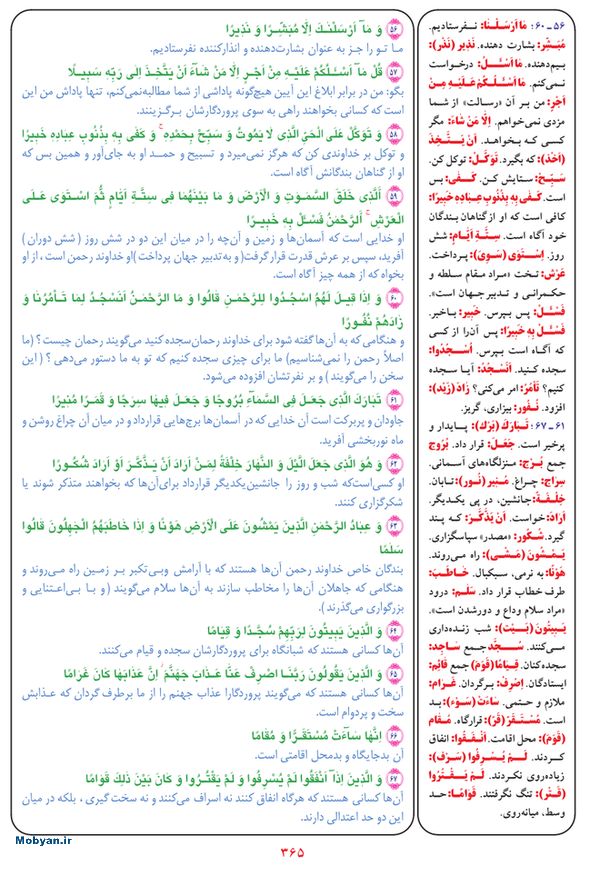 ۵۶ ـ ۶۰: مَا اَرْسَلْنَا: نفرستادیم.
مُبَشِّر: بشارت دهنده. نَذیر (نَذَرَ):
بیم‌دهنده. مَا اَسْئَلُ: درخواست
نمی‌کنم. مَا اَسْئَلُکُمْ عَلَیْهِ مِنْ
اَجْرٍ: من بر آن «رسالت» از شما
مزدی نمی‌خواهم. اِلّا مَنْ شاءَ: مگر
کسی که بخواهد. اَنْ یَتَّخِذَ
(اَخَذَ): که بگیرد. تَوَکَّلْ: توکل کن.
سَبِّحْ: ستایش کن. کَفـی: بس
است. کَفی بِهِ بِذُنُوبِ عِبادِهِ خَبیرًا:
کافی است که او از گناهان بندگان
خود آگاه است. سِتَّةِ اَیّامٍ: شش
روز. اِسْتَوی (سَوِیَ): پرداخت.
عَرْش: تخت «مراد مقام سلطه و
حکمرانی و تدبیر جهان است».
فَسْئَلْ: پس بپرس. خَبیر: باخبر.
فَسْئَلْ بِهِ خَبیرًا: پس آن‌را از کسی
که آگاه است بپرس. اُسْجُدُوا:
سجده کنید. اَنَسْجُدُ: آیا سجده
کنیم؟ تَأمُرُ: امر می‌کنی؟ زادَ (زَیَدَ):
افزود. نُفُور: بیزاری، گریز.
۶۱ ـ ۶۷: تَبارَکَ (بَرَکَ): پایدار و
پرخیر است. جَعَلَ: قرار داد. بُرُوج
جمع بُرْج: منزلگاه‌های آسمانی.
سِراج: چراغ. مُنیر (نَوَرَ): تابان.
خِلْفَةً: جانشین، در پی یکدیگر.
اَرادَ: خواست. اَنْ یَذَّکَّرَ: که پند
گیرد. شُکُور: «مصدر» سپاسگزاری.
یَمْشُونَ (مَشَیَ): راه می‌روند.
هَوْنًا: به نرمی، سبکبال. خاطَبَ:
طرف خطاب قرار داد. سَلام: درود
«مراد سلام وداع و دورشدن است».
یَبیتُونَ (بَیَتَ): شب زنده‌داری
می‌کنند. سُجَّد جمع ساجِد:
سجده‌کنان. قِیامًا (قَوَمَ) جمع قائِم:
ایستادگان. اِصْرِفْ: برگردان. غَرام:
ملازم و حتمی. ساءَتْ (سَوَءَ): بد
است. مُسْتَقَرّ (قَرَّ): قرارگاه. مُقام
(قَوَمَ): محل اقامت. اَنْفَقُوا: انفاق
کردند. لَمْ یُسْرِفُوا (سَرَفَ):
زیاده‌روی نکردند. لَمْ یَقْتُرُوا
(قَتَرَ): تنگ نگرفتند. قَوامًا: حد
وسط، میانه‌روی.
۵۶ وَ مَآ اَرْسَلْنٰکَ اِلّا مُبَشِّرًا وَ نَذیرًا
ما تو را جز به عنوان بشارت‌دهنده و انذارکننده نفرستادیم.
۵۷ قُلْ مَآ اَسْئَلُکُمْ عَلَیْهِ مِنْ اَجْرٍ اِلّا مَنْ شَآءَ اَنْ یَتَّخِذَ اِلٰی رَبِّهٖ سَبیلًا
بگو: من در برابر ابلاغ این آیین هیچ‌گونه پاداشی از شما مطالبه‌نمی‌کنم، تنها پاداش من این
است که کسانی بخواهند راهی به سوی پروردگارشان برگزینند.
۵۸ وَ تَوَکَّلْ عَلَی الْحَیِّ الَّذی لا یَمُوتُ وَ سَبِّحْ بِحَمْدِهٖ ۚ وَ کَفٰی بِهٖ بِذُنُوبِ عِبادِهٖ خَبیرًا
و توکل بر خداوندی کن که هرگز نمی‌میرد و تسبیح و حمد او به جای‌آور و همین بس که
او از گناهان بندگانش آگاه است.
۵۹ اَلَّذی خَلَقَ السَّمٰوٰتِ وَ الْاَرْضَ وَ ما بَیْنَهُما فی سِتَّةِ اَیّامٍ ثُمَّ اسْتَوٰی عَلَی
الْعَرْشِ ۚ اَلرَّحْمٰنُ فَسْئَلْ بِهٖ خَبیرًا
او خدایی است که آسمان‌ها و زمین و آن‌چه را در میان این دو در شش روز ( شش دوران )
آفرید، سپس بر عرش قدرت قرار گرفت( و به‌تدبیر جهان پرداخت )او خداوند رحمن است ، از او
بخواه که از همه چیز آگاه است.
۶۰ وَ اِذا قیلَ لَهُمُ اسْجُدُوا لِلرَّحْمٰنِ قالُوا وَ مَا الرَّحْمٰنُ اَنَسْجُدُ لِما تَأْمُرُنا وَ
زادَهُمْ نُفُورًا
و هنگامی که به آن‌ها گفته شود برای خداوند رحمان‌سجده کنید می‌گویند رحمان چیست ؟ (ما
اصلاً رحمن را نمی‌شناسیم) ما برای چیزی سجده کنیم که تو به ما دستور می‌دهی ؟ ( این
سخن را می‌گویند ) و بر نفرتشان افزوده می‌شود.
۶۱ تَبارَکَ الَّذی جَعَلَ فِی السَّمآءِ بُرُوجًا وَ جَعَلَ فیها سِرٰجًا وَ قَمَرًا مُنیرًا
جاودان و پربرکت است آن خدایی که در آسمان‌ها برج‌هایی قرارداد و در میان آن چراغ روشن و
ماه نوربخشی آفرید.
۶۲ وَ هُوَ الَّذی جَعَلَ الَّیْلَ وَ النَّهارَ خِلْفَةً لِمَنْ اَرادَ اَنْ یَذَّکَّرَ اَوْ اَرادَ شُکُورًا
او کسی‌است‌که شب و روز را جانشین‌یکدیگر قرارداد برای‌آن‌ها که بخواهند متذکر شوند یا
شکرگزاری کنند.
۶۳ وَ عِبادُ الرَّحْمٰنِ الَّذینَ یَمْشُونَ عَلَی الْاَرْضِ هَوْنًا وَ اِذا خاطَبَهُمُ الْجٰهِلُونَ قالُوا
سَلٰمًا
بندگان خاص خداوند رحمن آن‌ها هستند که با آرامش وبی‌تکبر بر زمین راه می‌روند و
هنگامی که جاهلان آن‌ها را مخاطب سازند به آن‌ها سلام می‌گویند ( و با بی‌اعتنایی و
بزرگواری می‌گذرند ).
۶۴ وَ الَّذینَ یَبیتُونَ لِرَبِّهِمْ سُجَّدًا وَ قِیامًا
آن‌ها کسانی هستند که شبانگاه برای پروردگارشان سجده و قیام می‌کنند.
۶۵ وَ الَّذینَ یَقُولُونَ رَبَّنَا اصْرِفْ عَنّا عَذابَ جَهَنَّمَ ۖ اِنَّ عَذابَها کانَ غَرامًا
آن‌ها کسانی هستند که می‌گویند پروردگارا عذاب جهنم را از ما برطرف گردان که عذابش
سخت و پردوام است.
۶۶ اِنَّها سآءَتْ مُسْتَقَرًّا وَ مُقامًا
آن بدجایگاه و بدمحل اقامتی است.
۶۷ وَ الَّذینَ اِذآ اَنْفَقُوا لَمْ یُسْرِفُوا وَ لَمْ یَقْتُرُوا وَ کانَ بَیْنَ ذٰلِکَ قَوامًا
آن‌ها کسانی هستند که هرگاه انفاق کنند نه اسراف می‌کنند و نه سخت گیری ، بلکه در میان
این دو حد اعتدالی دارند.
Mobyan.ir
۳۶۵